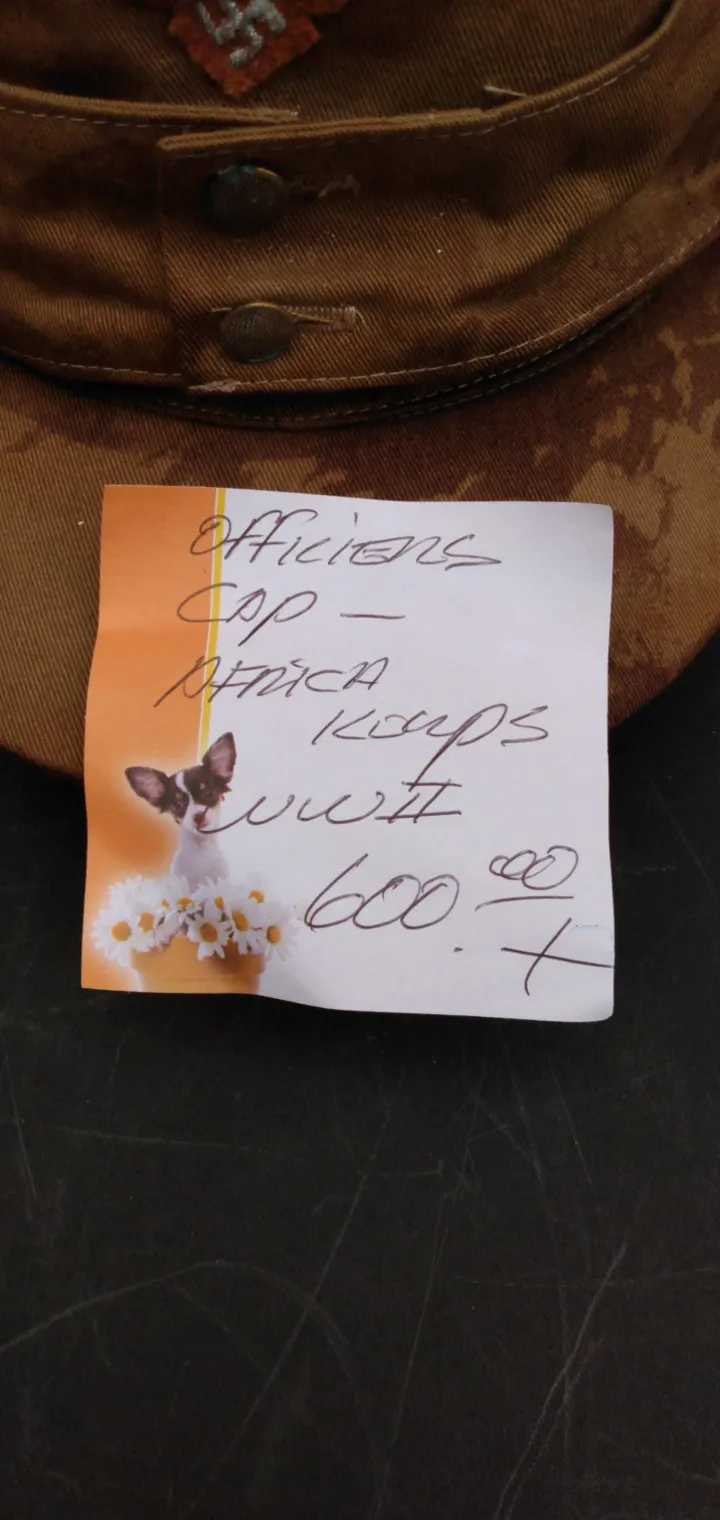 OFFICIERS
CAP —
AFRICA
KORPS
WWII
600.00